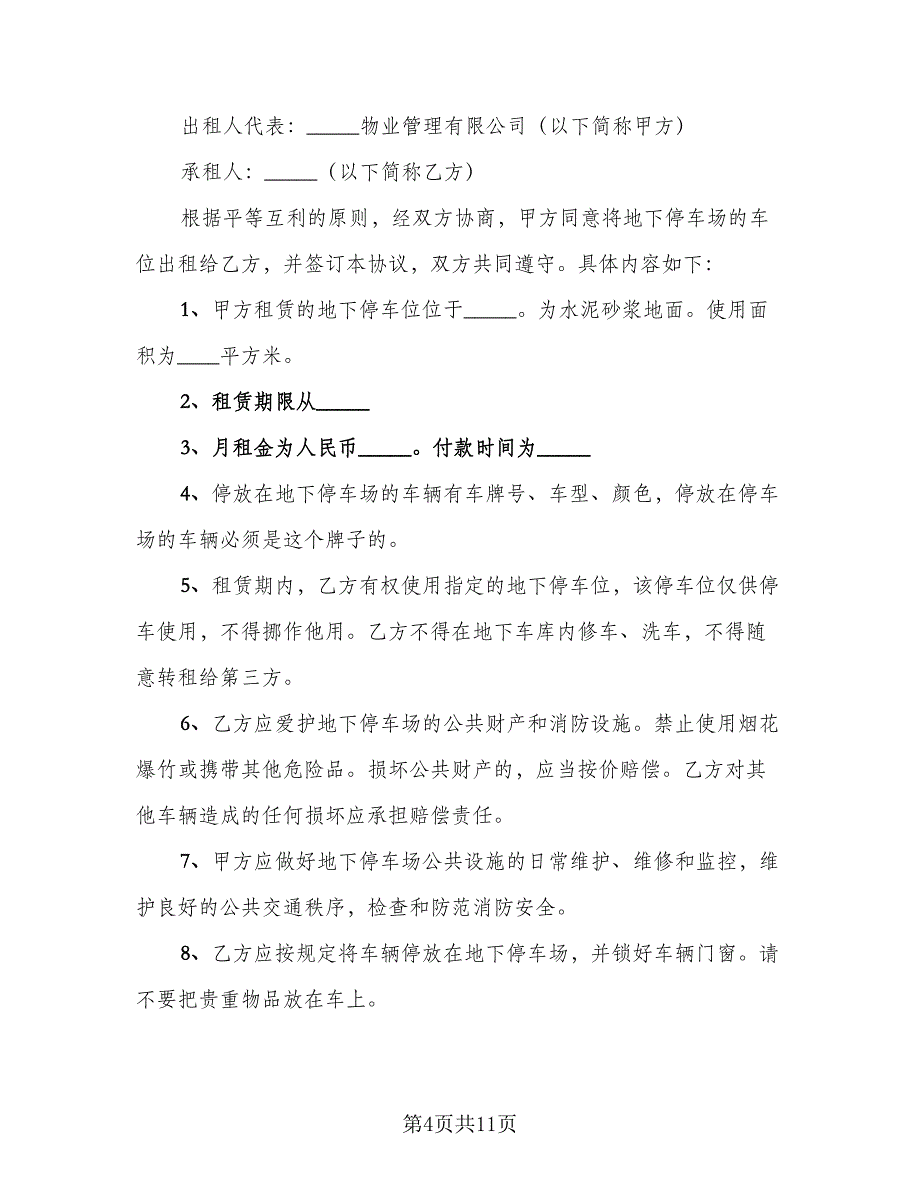 出租人代表：_____物业管理有限公司（以下简称甲方）
承租人：_____（以下简称乙方）
根据平等互利的原则，经双方协商，甲方同意将地下停车场的车
位出租给乙方，并签订本协议，双方共同遵守。具体内容如下：
1、甲方租赁的地下停车位位于_____。为水泥砂浆地面。使用面
积为____平方米。
2、租赁期限从_____
3、月租金为人民币_____。付款时间为_____
4、停放在地下停车场的车辆有车牌号、车型、颜色，停放在停车
场的车辆必须是这个牌子的。
5、租赁期内，乙方有权使用指定的地下停车位，该停车位仅供停
车使用，不得挪作他用。乙方不得在地下车库内修车、洗车，不得随
意转租给第三方。
6、乙方应爱护地下停车场的公共财产和消防设施。禁止使用烟花
爆竹或携带其他危险品。损坏公共财产的，应当按价赔偿。乙方对其
他车辆造成的任何损坏应承担赔偿责任。
7、甲方应做好地下停车场公共设施的日常维护、维修和监控，维
护良好的公共交通秩序，检查和防范消防安全。
8、乙方应按规定将车辆停放在地下停车场，并锁好车辆门窗。请
不要把贵重物品放在车上。
第4页共11页